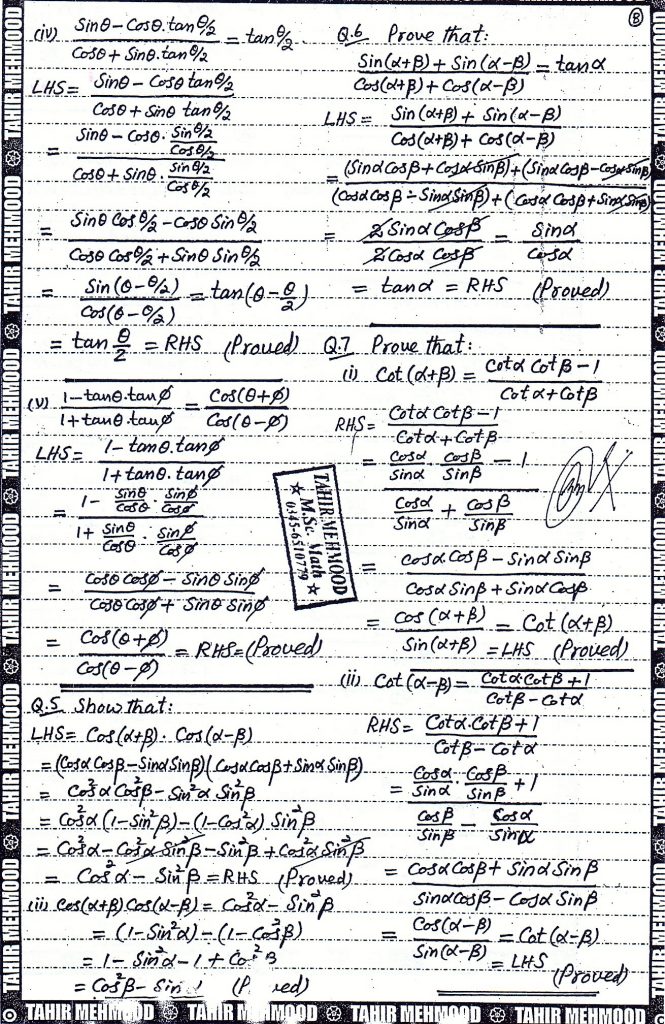 (8)
(iv) Sinθ - Cosθ.tanθ/2 / Cosθ + Sinθ.tanθ/2 = tanθ/2
LHS = Sinθ - Cosθ tanθ/2 / Cosθ + Sinθ tanθ/2
= Sinθ - Cosθ. Sinθ/2 / Cosθ/2 / Cosθ + Sinθ. Sinθ/2 / Cosθ/2
= Sinθ Cosθ/2 - Cosθ Sinθ/2 / Cosθ Cosθ/2 + Sinθ Sinθ/2
= Sin(θ-θ/2) / Cos(θ-θ/2) = tan(θ-θ/2)
= tan θ/2 = RHS (Proved)
(v) 1-tanθ.tanø / 1+tanθ.tanø = Cos(θ+ø) / Cos(θ-ø)
LHS = 1-tanθ.tanø / 1+tanθ.tanø
= 1 - Sinθ/Cosθ . Sinø/Cosø / 1 + Sinθ/Cosθ . Sinø/Cosø
= Cosθ Cosø - Sinθ Sinø / Cosθ Cosø + Sinθ Sinø
= Cos(θ+ø) / Cos(θ-ø) = RHS = (Proved)
Q.5 Show that:
LHS = Cos(α+β). Cos(α-β)
= (Cosα Cosβ - Sinα Sinβ)(Cosα Cosβ + Sinα Sinβ)
= Cos²α Cos²β - Sin²α Sin²β
= Cos²α (1-Sin²β) - (1-Cos²α) Sin²β
= Cos²α - Cos²α Sin²β - Sin²β + Cos²α Sin²β
= Cos²α - Sin²β = RHS (Proved)
(ii) Cos(α+β) Cos(α-β) = Cos²α - Sin²β
= (1-Sin²α) - (1-Cos²β)
= 1 - Sin²α - 1 + Cos²β
= Cos²β - Sin
Q.6 Prove that:
Sin(α+β) + Sin(α-β) / Cos(α+β) + Cos(α-β) = tanα
LHS = Sin(α+β) + Sin(α-β) / Cos(α+β) + Cos(α-β)
= (Sinα Cosβ + Cosα Sinβ) + (Sinα Cosβ - Cosα Sinβ) / (Cosα Cosβ - Sinα Sinβ) + (Cosα Cosβ + Sinα Sinβ)
= 2 Sinα Cosβ / 2 Cosα Cosβ = Sinα / Cosα
= tanα = RHS (Proved)
Q.7 Prove that:
(i) Cot(α+β) = Cotα Cotβ - 1 / Cotα + Cotβ
RHS = Cotα Cotβ - 1 / Cotα + Cotβ
= Cosα/Sinα . Cosβ/Sinβ - 1 / Cosα/Sinα + Cosβ/Sinβ
= Cosα Cosβ - Sinα Sinβ / Cosα Sinβ + Sinα Cosβ
= Cos(α+β) / Sin(α+β) = Cot(α+β)
= LHS (Proved)
(ii) Cot(α-β) = Cotα.Cotβ + 1 / Cotβ - Cotα
RHS = Cotα.Cotβ + 1 / Cotβ - Cotα
= Cosα/Sinα . Cosβ/Sinβ + 1 / Cosβ/Sinβ - Cosα/Sinα
= Cosα Cosβ + Sinα Sinβ / Sinα Cosβ - Cosα Sinβ
= Cos(α-β) / Sin(α-β) = Cot(α-β)
= LHS (Proved)
TAHIR MEHMOOD
M.Sc. Math
★ 0345-6510779 ★
TAHIR MEHMOOD
TAHIR MEHMOOD
TAHIR MEHMOOD
TAHIR MEHMOOD
TAHIR MEHMOOD
TAHIR MEHMOOD
TAHIR MEHMOOD
TAHIR MEHMOOD
TAHIR MEHMOOD
TAHIR MEHMOOD
TAHIR MEHMOOD
TAHIR MEHMOOD
TAHIR MEHMOOD TAHIR MEHMOOD TAHIR MEHMOOD TAHIR MEHMOOD